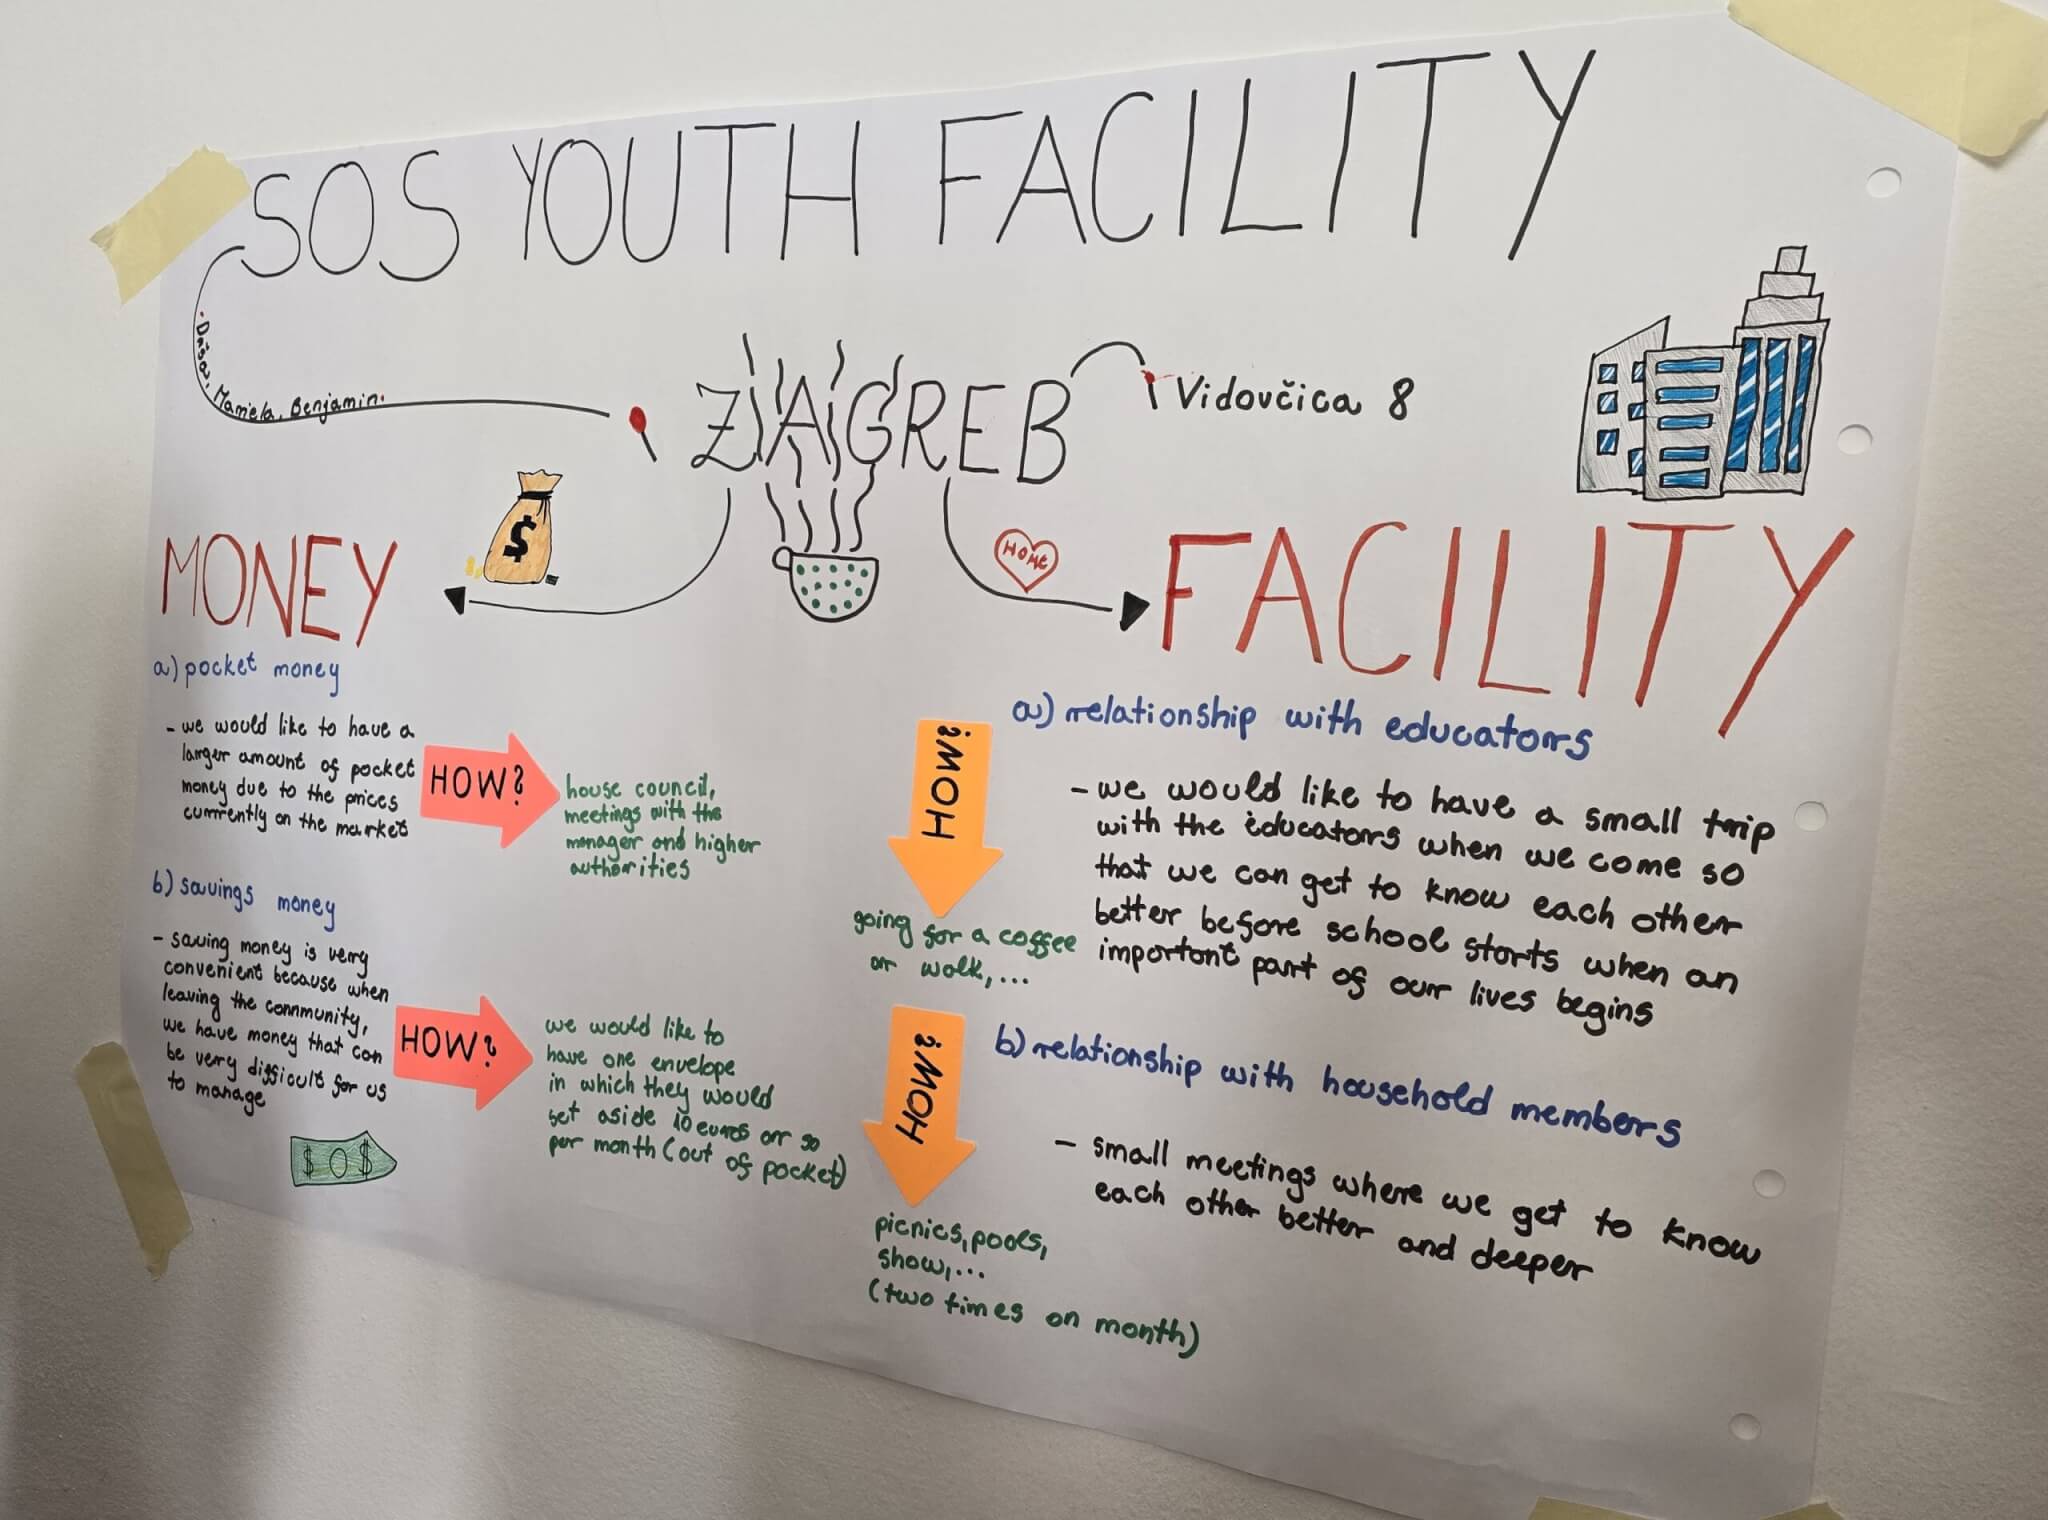 SOS YOUTH FACILITY
Dašav, Mamela, Benjamin
ZAGREB
Vidovčica 8
$
HOME
MONEY
a) pocket money
- we would like to have a
larger amount of pocket
money due to the prices
currently on the market
HOW?
house council,
meetings with the
manager and higher
authorities
b) savings money
- saving money is very
convenient because when
leaving the community,
we have money that can
be very difficult for us
to manage
HOW?
we would like to
have one envelope
in which they would
set aside 10 euros or so
per month (out of pocket)
$ O $
FACILITY
a) relationship with educators
- we would like to have a small trip
with the educators when we come so
that we can get to know each other
better before school starts when an
important part of our lives begins
HOW?
going for a coffee
or walk,...
b) relationship with household members
- small meetings where we get to know
each other better and deeper
HOW?
picnics, pools,
show,...
(two times on month)